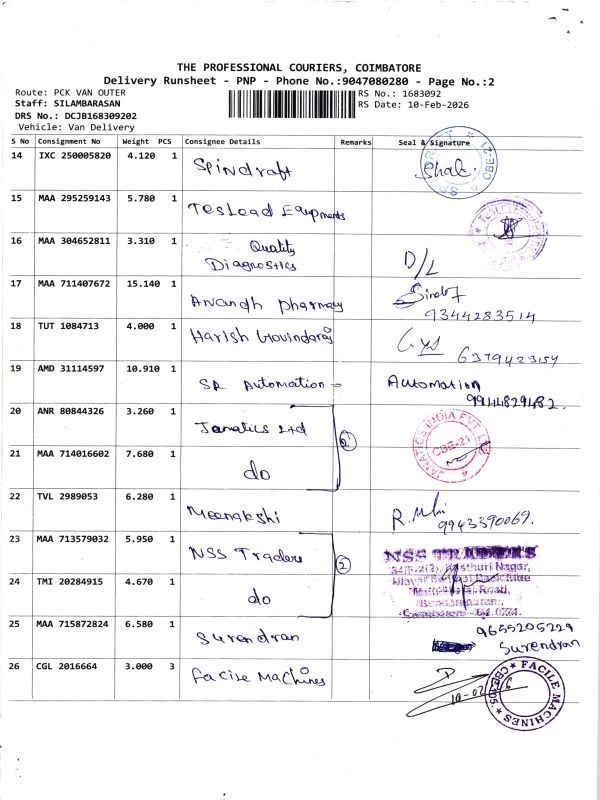 THE PROFESSIONAL COURIERS, COIMBATORE
Delivery Runsheet - PNP - Phone No.:9047080280 - Page No.:2
Route: PCK VAN OUTER
RS No.: 1683092
Staff: SILAMBARASAN
RS Date: 10-Feb-2026
DRS No.: DCJB168309202
Vehicle: Van Delivery
S No Consignment No Weight PCS Consignee Details Remarks Seal & Signature
14 IXC 250005820 4.120 1 Spindraft
15 MAA 295259143 5.780 1 Teslead Equpments
16 MAA 304652811 3.310 1 Quality Diagnostics D/L
17 MAA 711407672 15.140 1 Anandh pharmacy 9344283514
18 TUT 1084713 4.000 1 Harish Govindaraj 6379423154
19 AMD 31114597 10.910 1 SR Automation = Automation 9944829482.
20 ANR 80844326 3.260 1 Janatics Ltd 2 JANATICS INDIA PVT LTD CBE-21
21 MAA 714016602 7.680 1 do
22 TVL 2989053 6.280 1 Meenakshi 9943390069.
23 MAA 713579032 5.950 1 NSS Traders 2 NSS TRADERS
Kasthuri Nagar,
24 TMI 20284915 4.670 1 do
25 MAA 715872824 6.580 1 Surendran 9655205229 Surendran
26 CGL 2016664 3.000 3 Facile Machines FACILE MACHINES